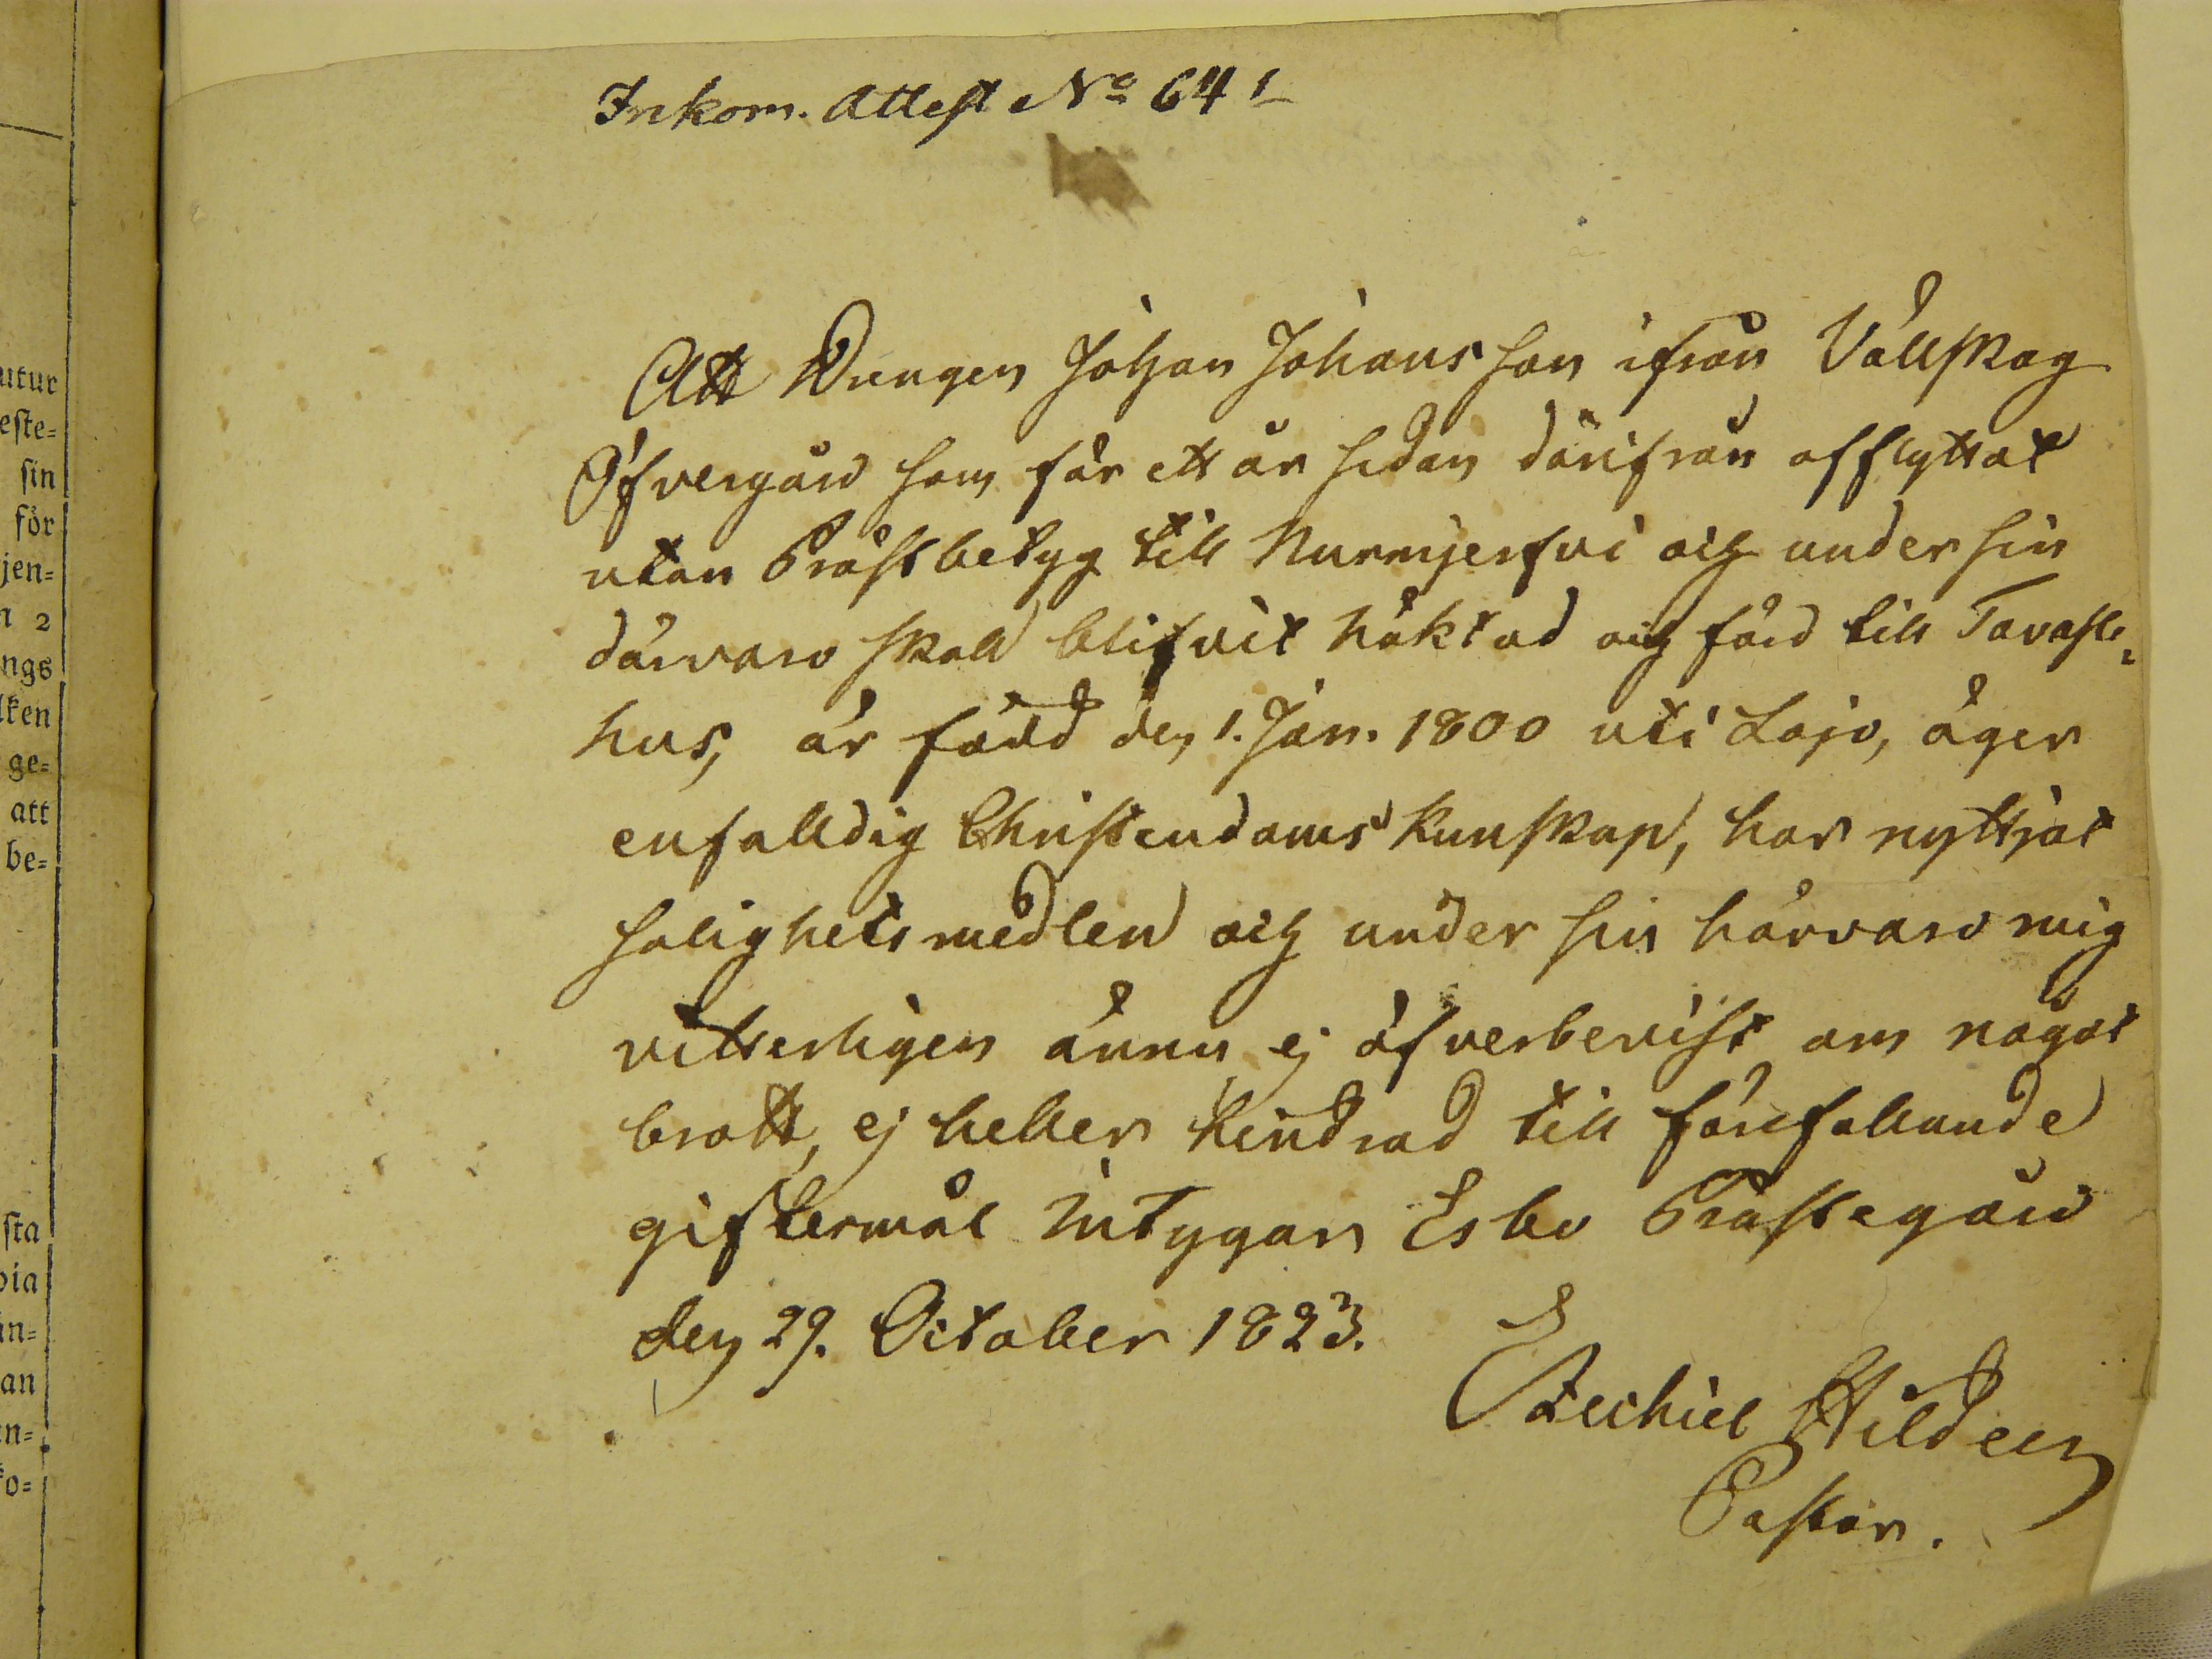 Inkom. Attest No 641
Att Drengen Johan Johansson ifrån Vällskog
Öfvergård som för ett år sedan därifrån afflyttat
utan Prästbetyg till Nurmijerfvi och under sin
därvaro skall blifvit häktad och förd till Tavaste,
hus, är född den 1. Jan. 1800 uti Lojo, äger
enfalldig Christendoms kunskap, har nyttjat
salighets medlen och under sin härvaro mig
vitterligen ännu ej öfverbevist om något
brott, ej heller hindrad till förefallande
giftermål intygar Esbo Prästegård
den 29. October 1823.
Ezechiel Hildeen
Pastor.
utur
este=
sin
för
jen=
n 2
ngs
lken
ge=
att
be=
sta
via
in=
an
en=
ko=